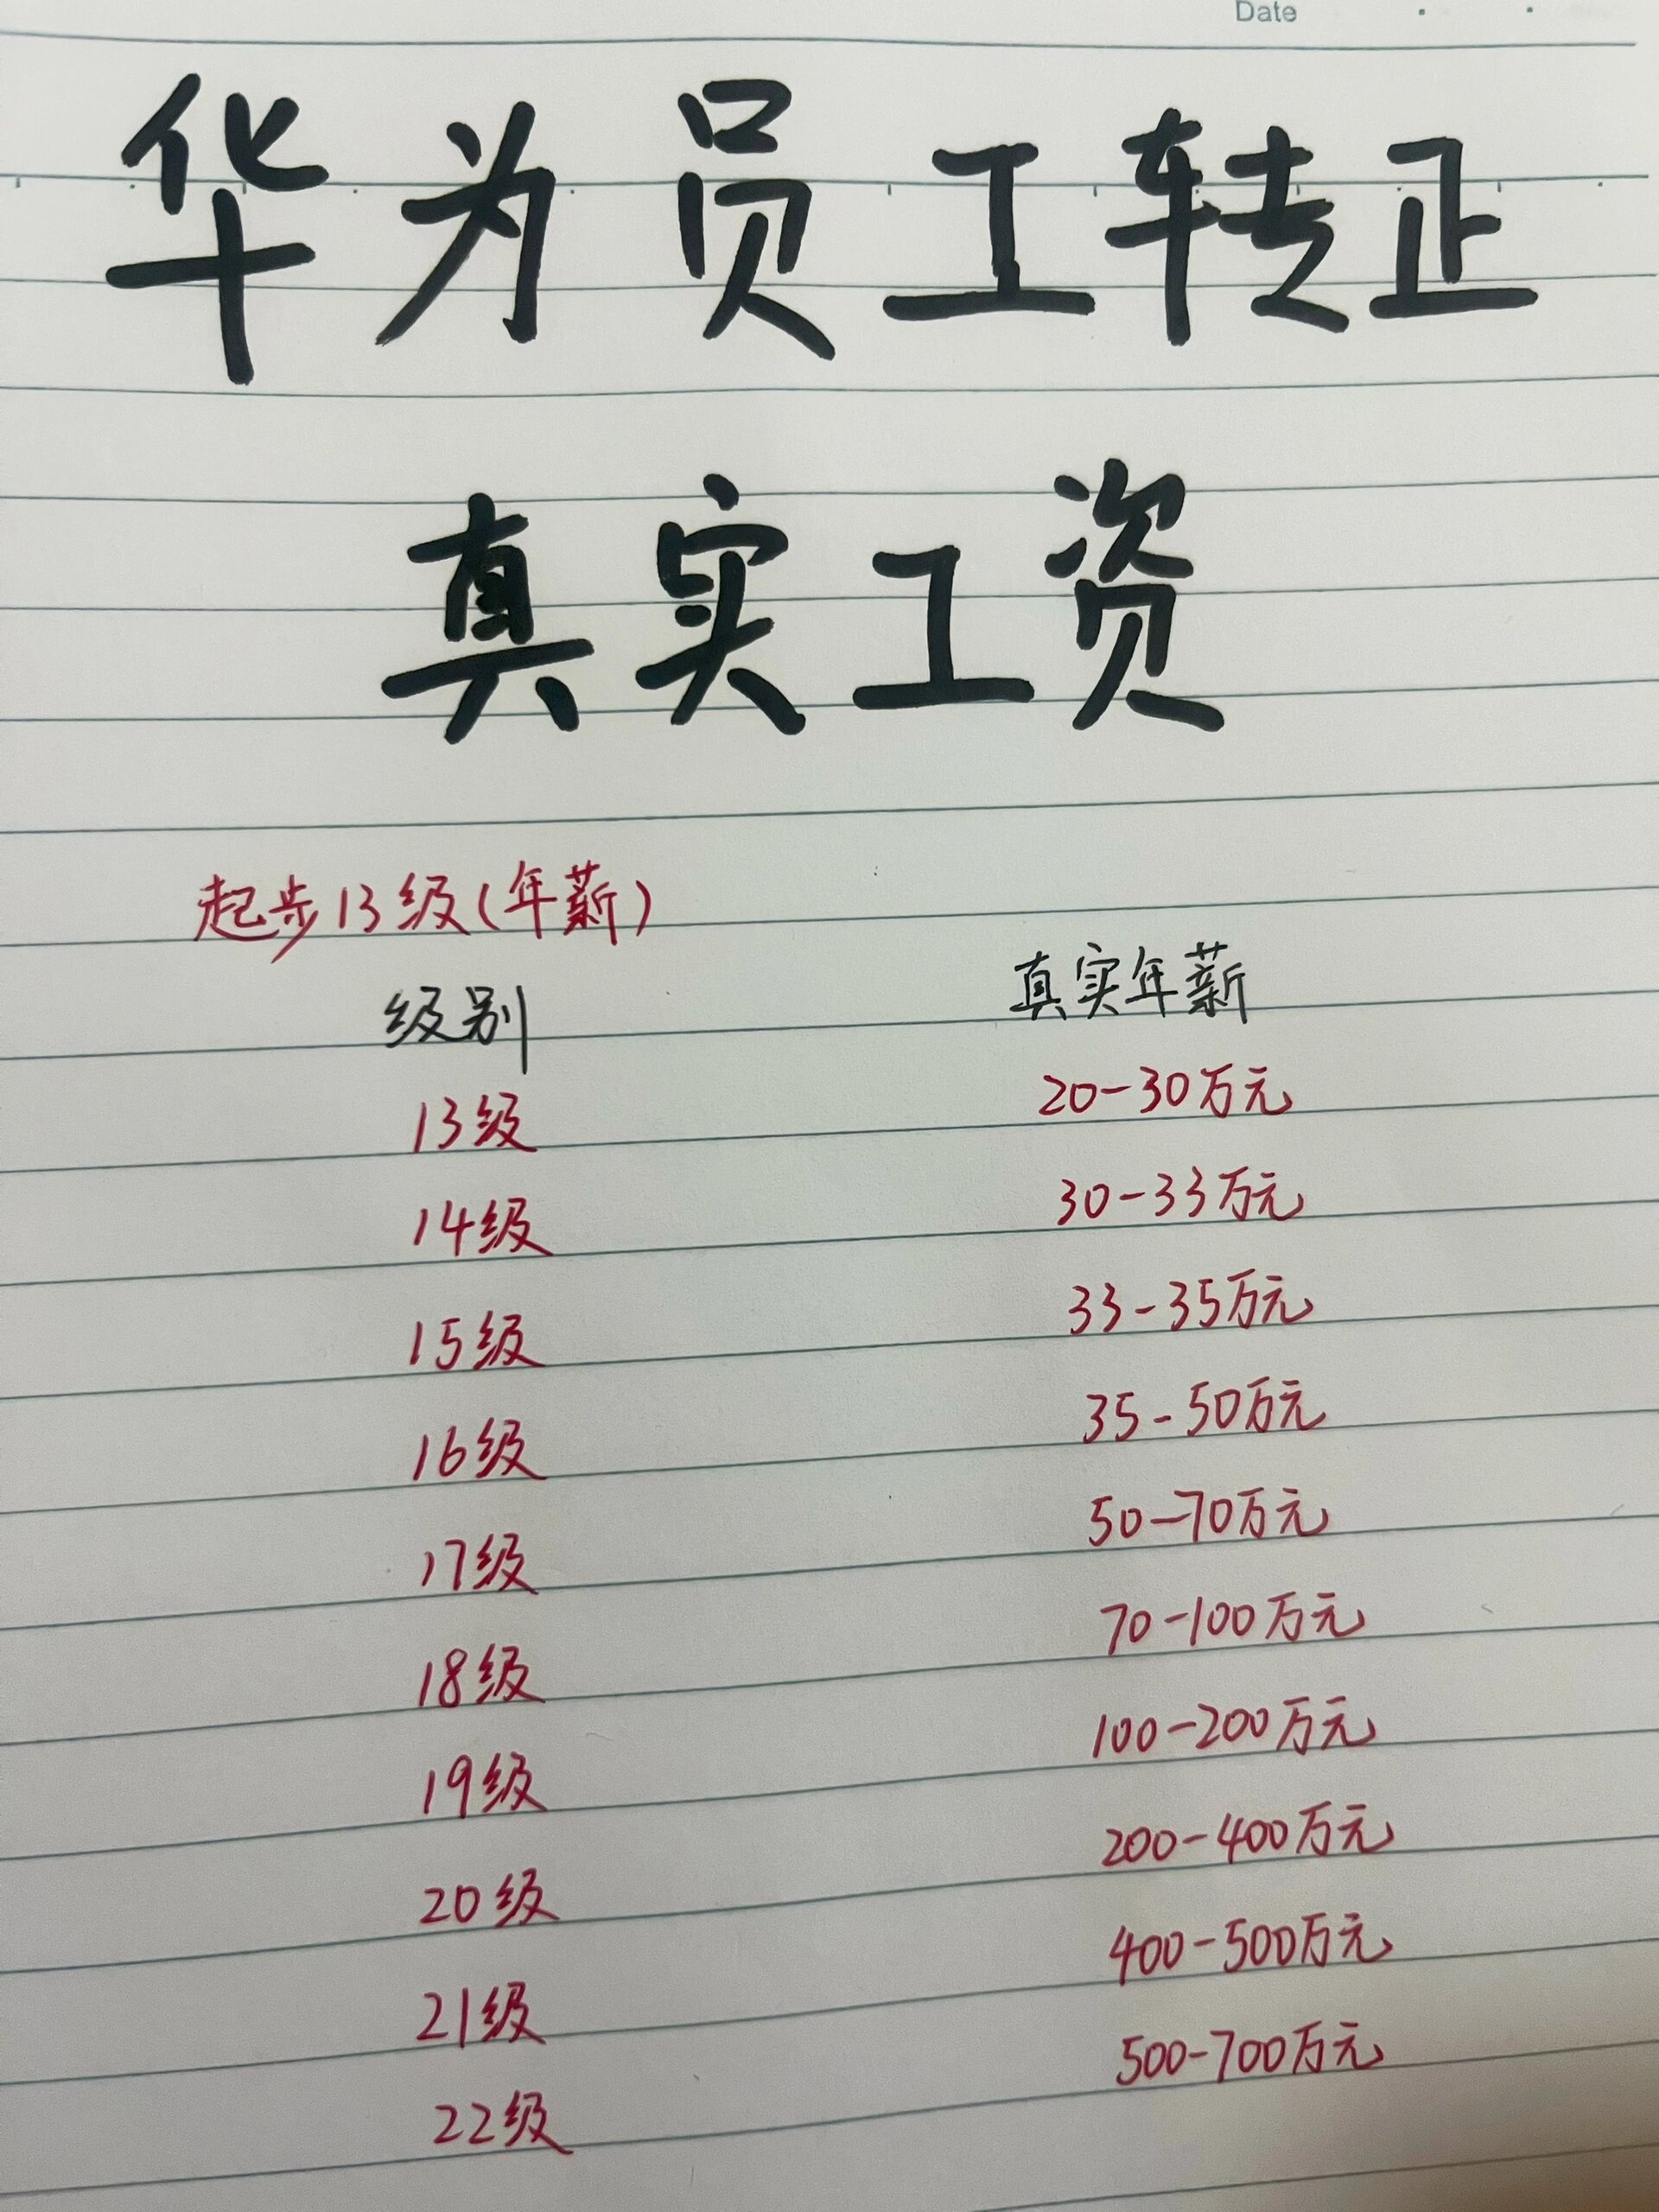 Date
华为员工转正
真实工资
起步13级(年薪)
级别 真实年薪
13级 20-30万元
14级 30-33万元
15级 33-35万元
16级 35-50万元
17级 50-70万元
18级 70-100万元
19级 100-200万元
20级 200-400万元
21级 400-500万元
22级 500-700万元